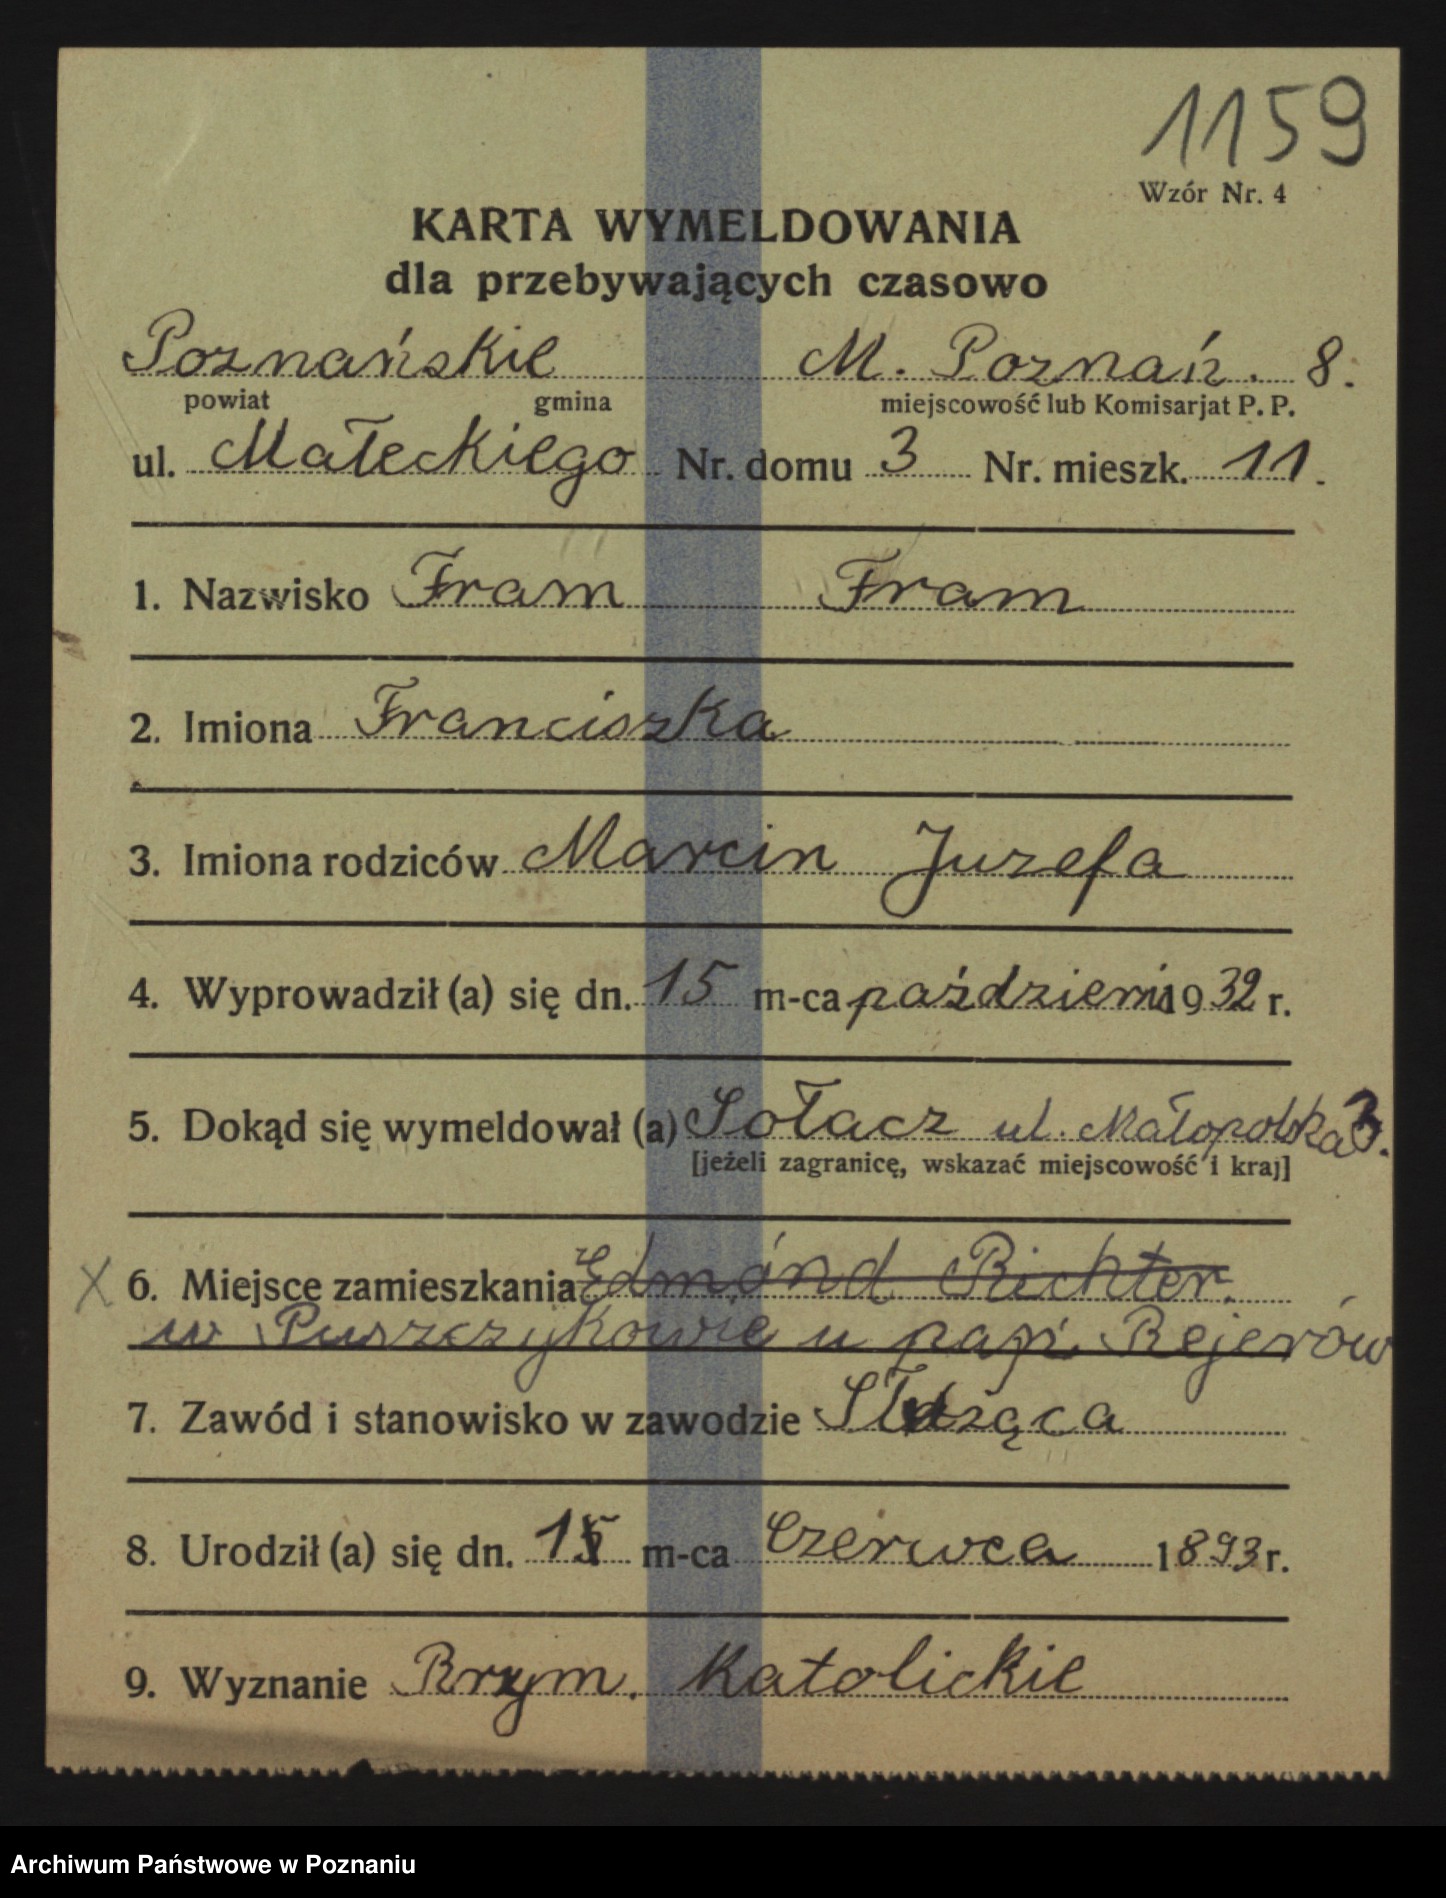 1159
Wzór Nr. 4
KARTA WYMELDOWANIA
dla przebywających czasowo
Poznańskie M. Poznań. 8.
powiat gmina miejscowość lub Komisarjat P. P.
ul. Małeckiego Nr. domu 3 Nr. mieszk. 11.
1. Nazwisko Fram Fram
2. Imiona Franciszka
3. Imiona rodziców Marcin Juzefa
4. Wyprowadził (a) się dn. 15 m-ca październi 1932 r.
5. Dokąd się wymeldował (a) Sołacz ul. Małopolska 3.
[jeżeli zagranicę, wskazać miejscowość i kraj]
X 6. Miejsce zamieszkania Edmónd Richter.
w Puszczykowie u Rejerów
7. Zawód i stanowisko w zawodzie Służąca
8. Urodził (a) się dn. m-ca Czerwca 1893 r.
9. Wyznanie Rzym. Katolickie
Archiwum Państwowe w Poznaniu